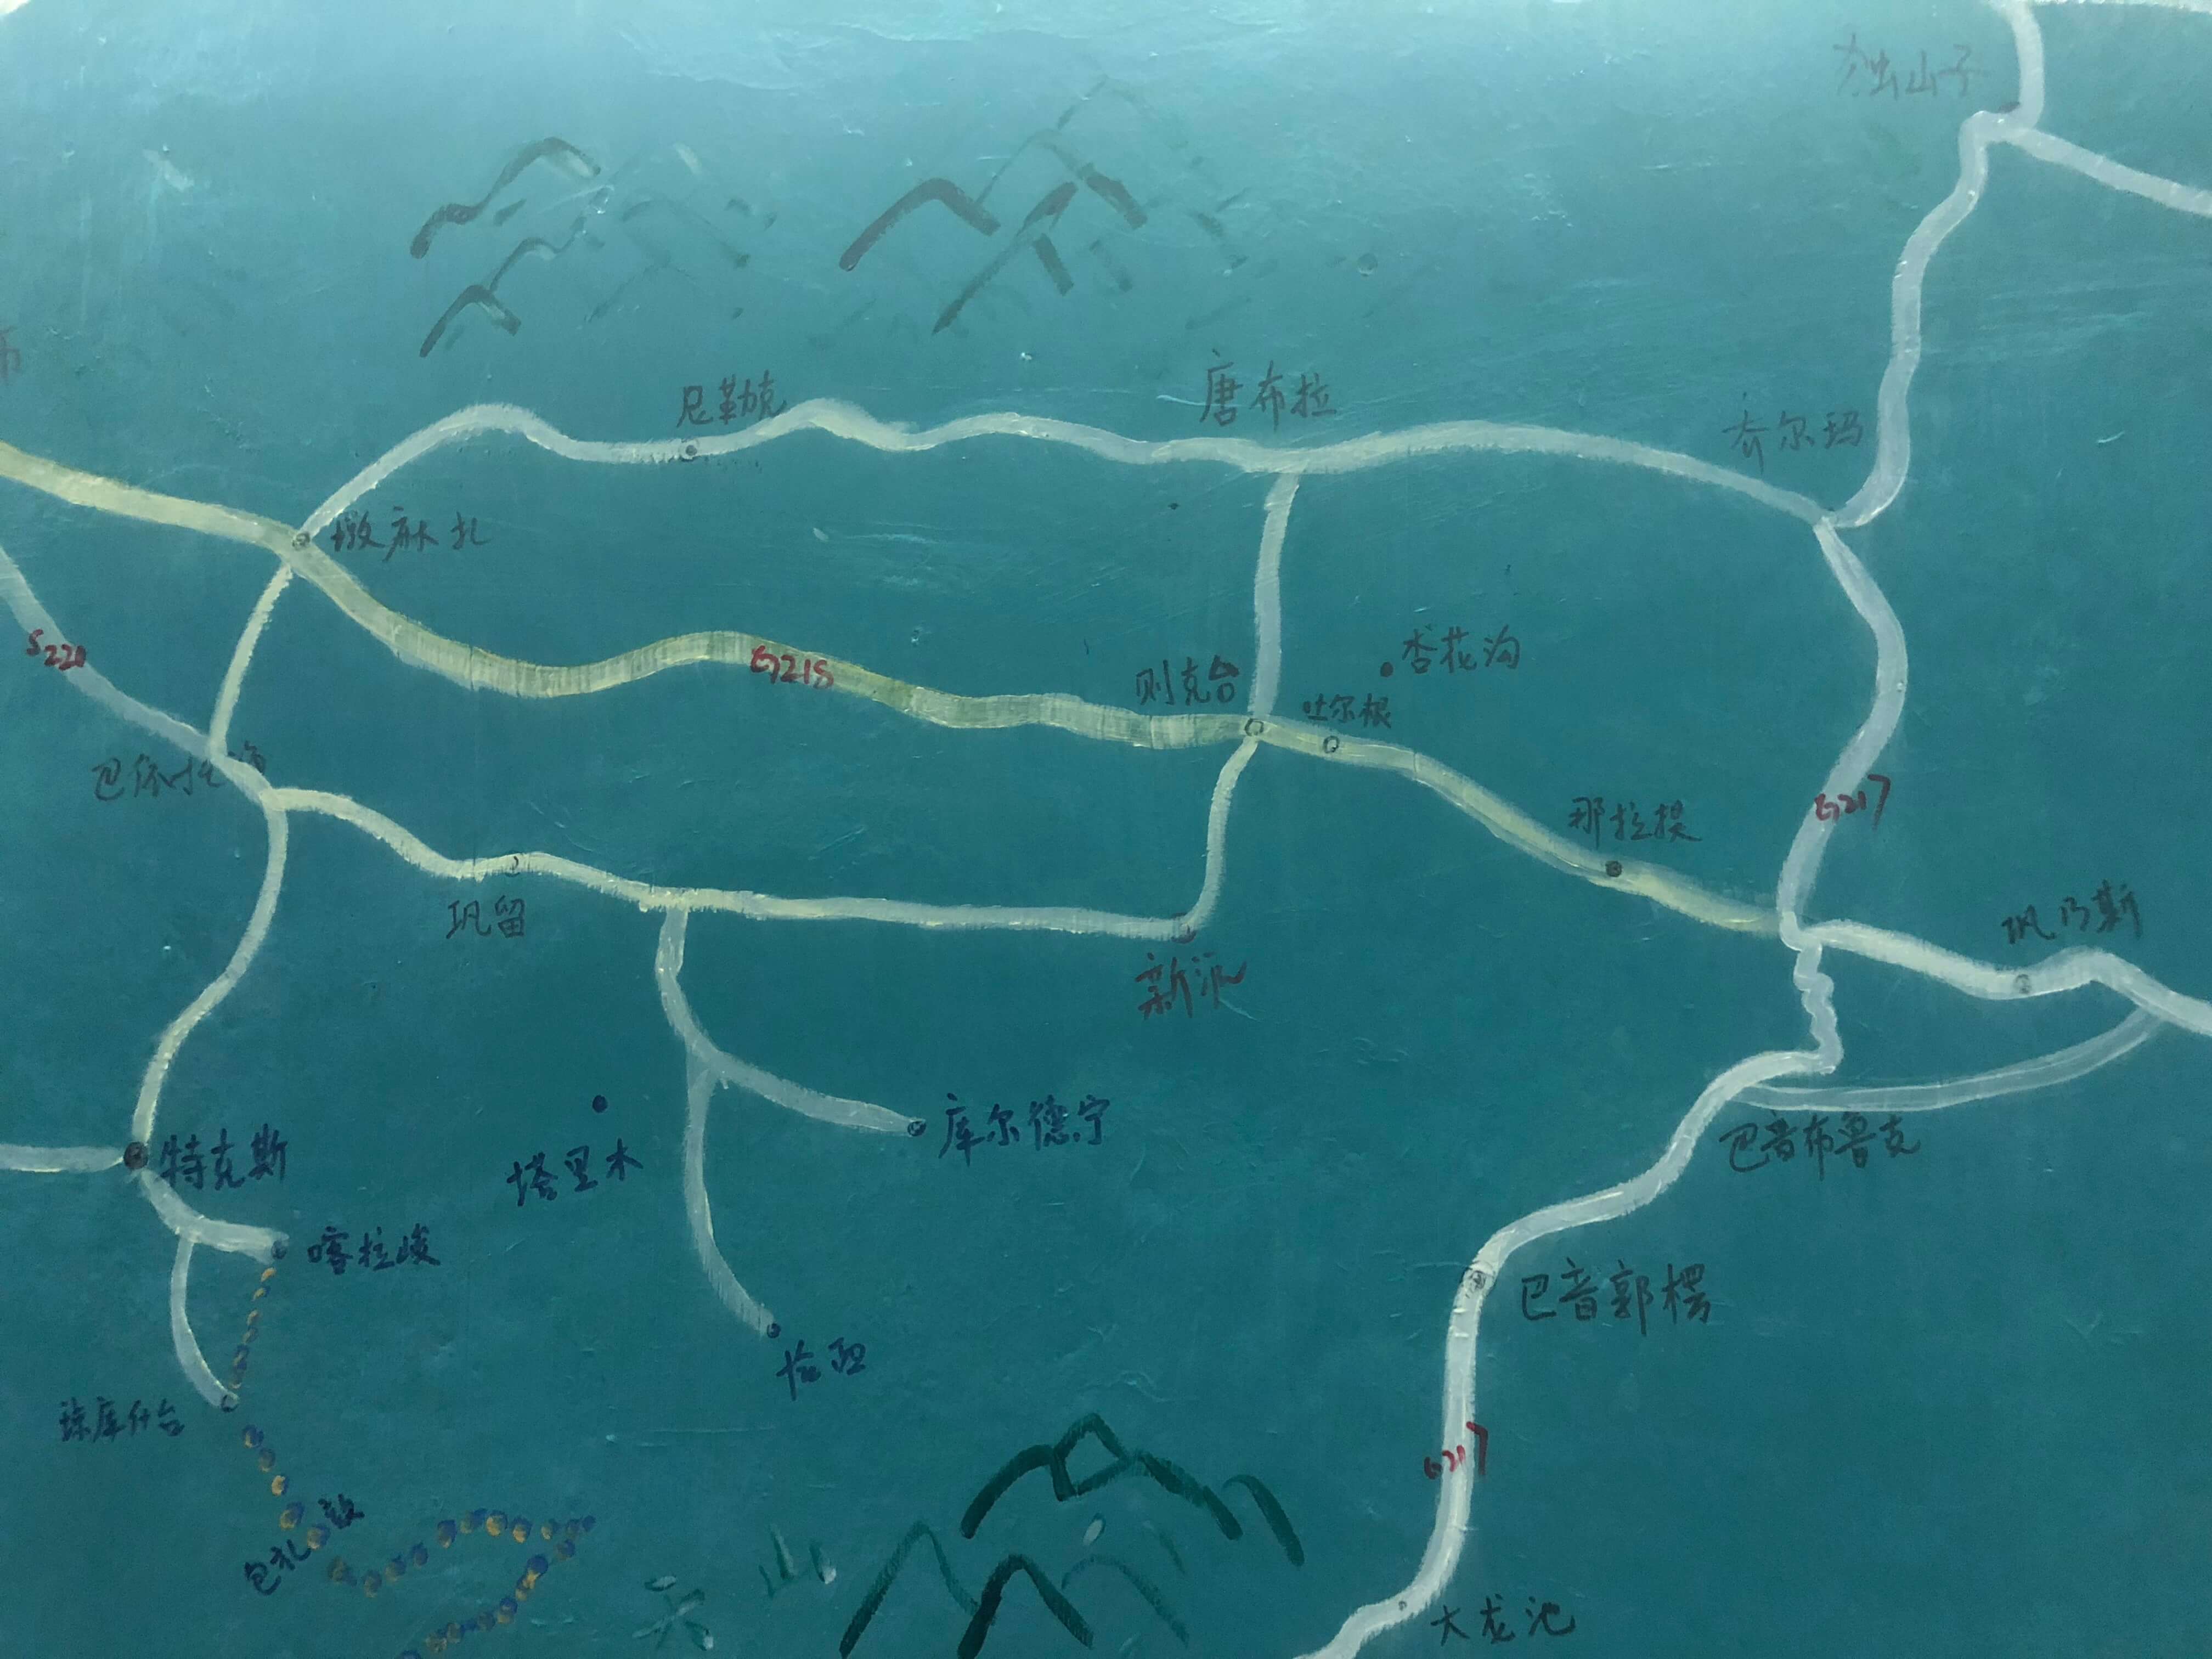 独山子
尼勒克
唐布拉
乔尔玛
墩麻扎
S220
G218
则克台
杏花沟
吐尔根
巴依托海
那拉提
G217
巩留
巩乃斯
新源
特克斯
塔里木
库尔德宁
巴音布鲁克
喀拉峻
巴音郭楞
恰西
琼库什台
G217
包扎墩
天山
大龙池